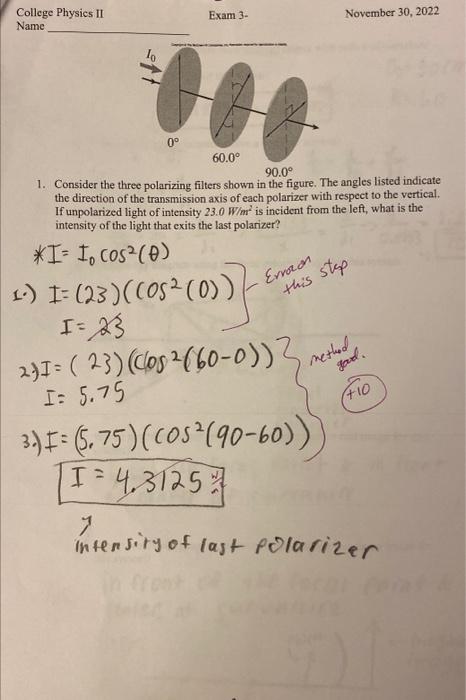 College Physics II Exam 3- November 30, 2022
Name
I₀
0°
60.0°
90.0°
1. Consider the three polarizing filters shown in the figure. The angles listed indicate
the direction of the transmission axis of each polarizer with respect to the vertical.
If unpolarized light of intensity 23.0 W/m² is incident from the left, what is the
intensity of the light that exits the last polarizer?
*I = I₀ cos²(θ)
1.) I = (23)(cos²(0))
Error on
this step
I = 23
2.) I = (23)(cos²(60-0))
method
good.
I = 5.75
+10
3.) I = (5.75)(cos²(90-60))
I = 4.3125 W/m²
intensity of last polarizer